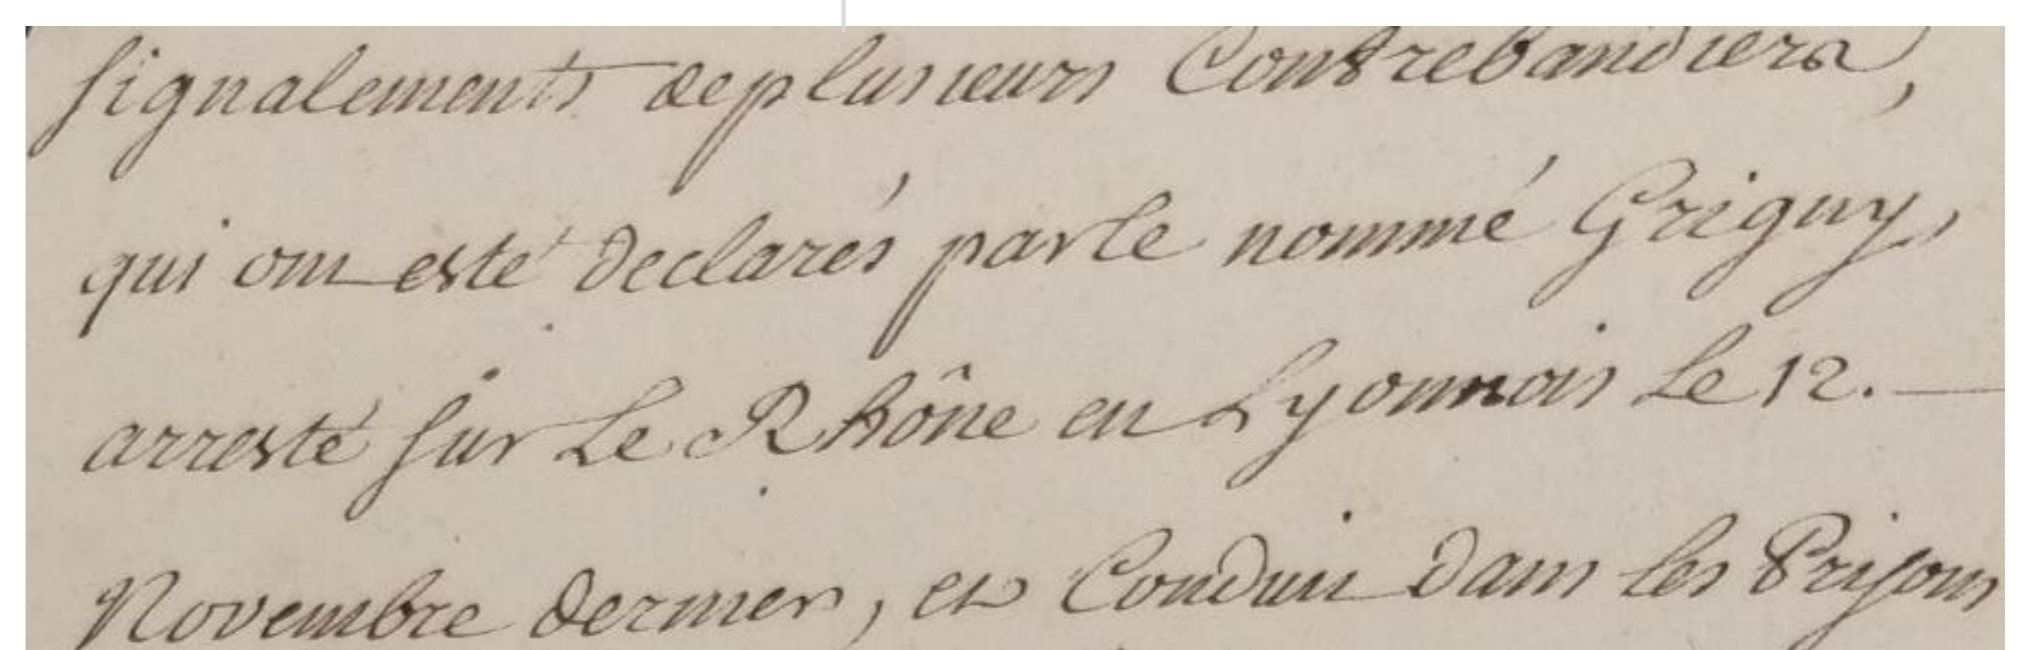 signalements de plusieurs Contrebandiers,
qui ont esté declarés par le nommé Griguy,
arresté sur Le Rhône en Lyonnois Le 12.
Novembre dernier, et Conduit dans les Prisons